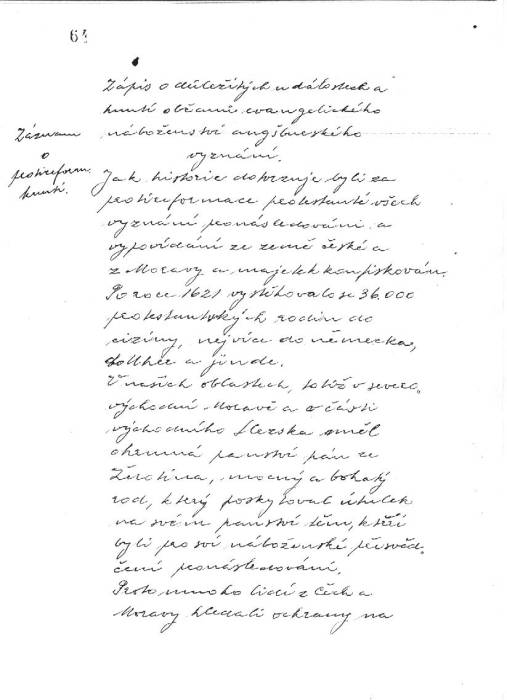 64
Zápis o důležitých událostech a
hnutí občanů evangelického
náboženství augšburského
vyznání.
Záznam
o
protireform.
hnutí.
Jak historie dotvrzuje byli za
protireformace protestanté všech
vyznání pronásledováni a
vypovídáni ze země české a
z Moravy a majetek konfiskován.
Po roce 1621 vystěhovalo se 36.000
protestantských rodin do
ciziny, nejvíce do německa,
a jinde.
V našich oblastech, totiž v severo-
východní Moravě a v části
východního Slezska měl
ohromná panství pán ze
Žerotína, mocný a bohatý
rod, který poskytoval útulek
na svém panství těm, kteří
byli pro své náboženské přesvěd-
čení pronásledováni.
Proto mnoho lidí z Čech a
Moravy hledali ochrany na